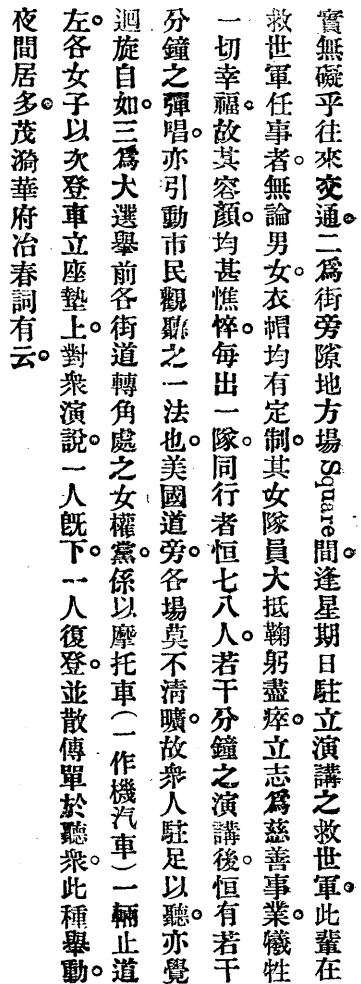 實無礙乎往來交通。二爲街旁隙地方場Square間。逢星期日駐立演講之救世軍。此輩在
救世軍任事者。無論男女。衣帽均有定制。其女隊員大抵鞠躬盡瘁。立志爲慈善事業。犧牲
一切幸福。故其容顏。均甚憔悴。每出一隊。同行者恒七八人。若干分鐘之演講後。恒有若干
分鐘之彈唱。亦引動市民觀聽之一法也。美國道旁。各場莫不淸曠。故衆人駐足以聽。亦覺
迴旋自如。三爲大選舉前各街道轉角處之女權黨。係以摩托車(一作機汽車)一輛止道
左。各女子以次登車立座墊上。對衆演說。一人旣下。一人復登。並散傳單於聽衆。此種舉動。
夜間居多。茂漪華府冶春詞有云。